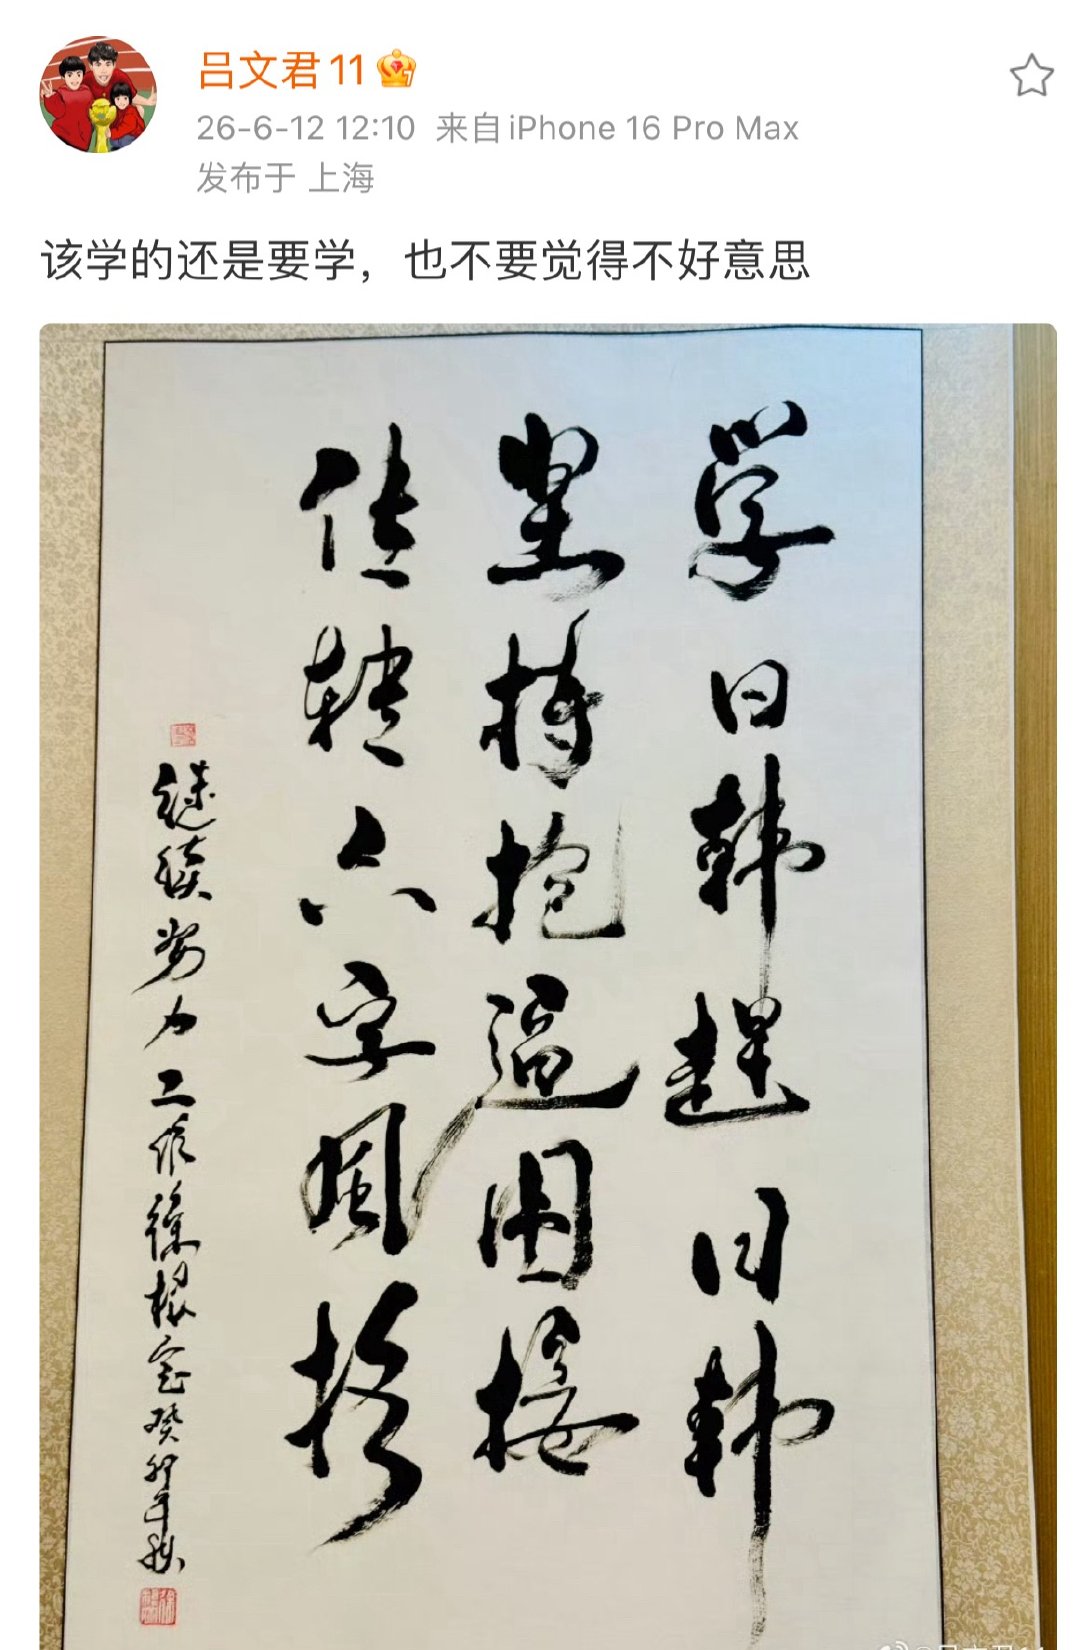 吕文君11
26-6-12 12:10 来自iPhone 16 Pro Max
发布于 上海
该学的还是要学，也不要觉得不好意思
学日韩赶日韩
坚持抢逼围接
传转六字风格
继续努力工作徐根宝癸卯年秋